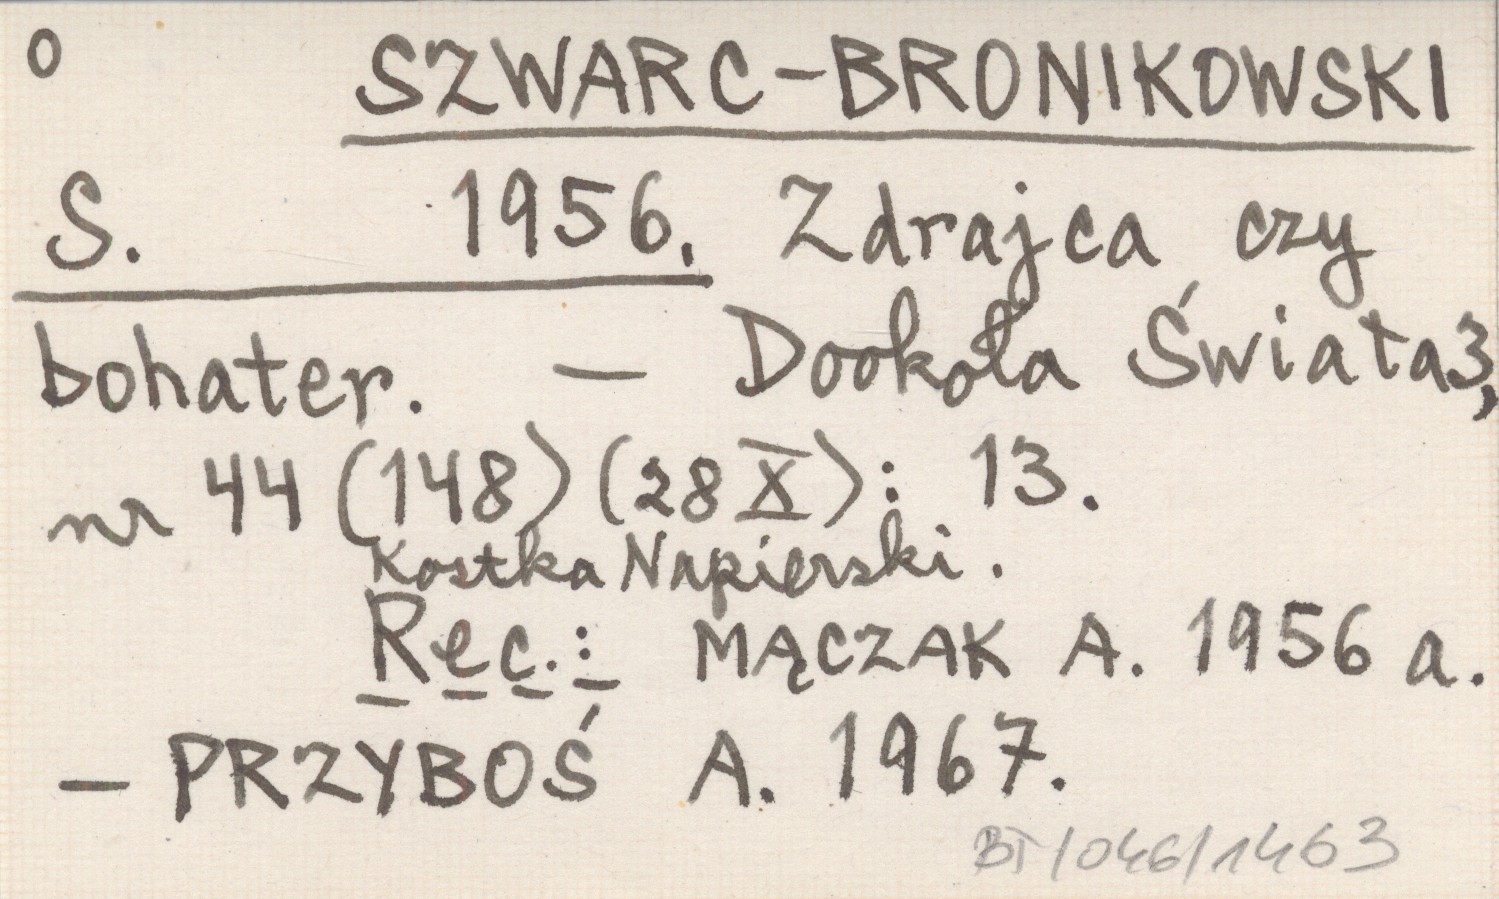 o SZWARC-BRONIKOWSKI
S. 1956. Zdrajca czy
bohater. — Dookoła Świata 3,
nr 44 (148) (28 X): 13.
Kostka Napierski.
Rec.: MĄCZAK A. 1956 a.
— PRZYBOŚ A. 1967.
BT/046/1463